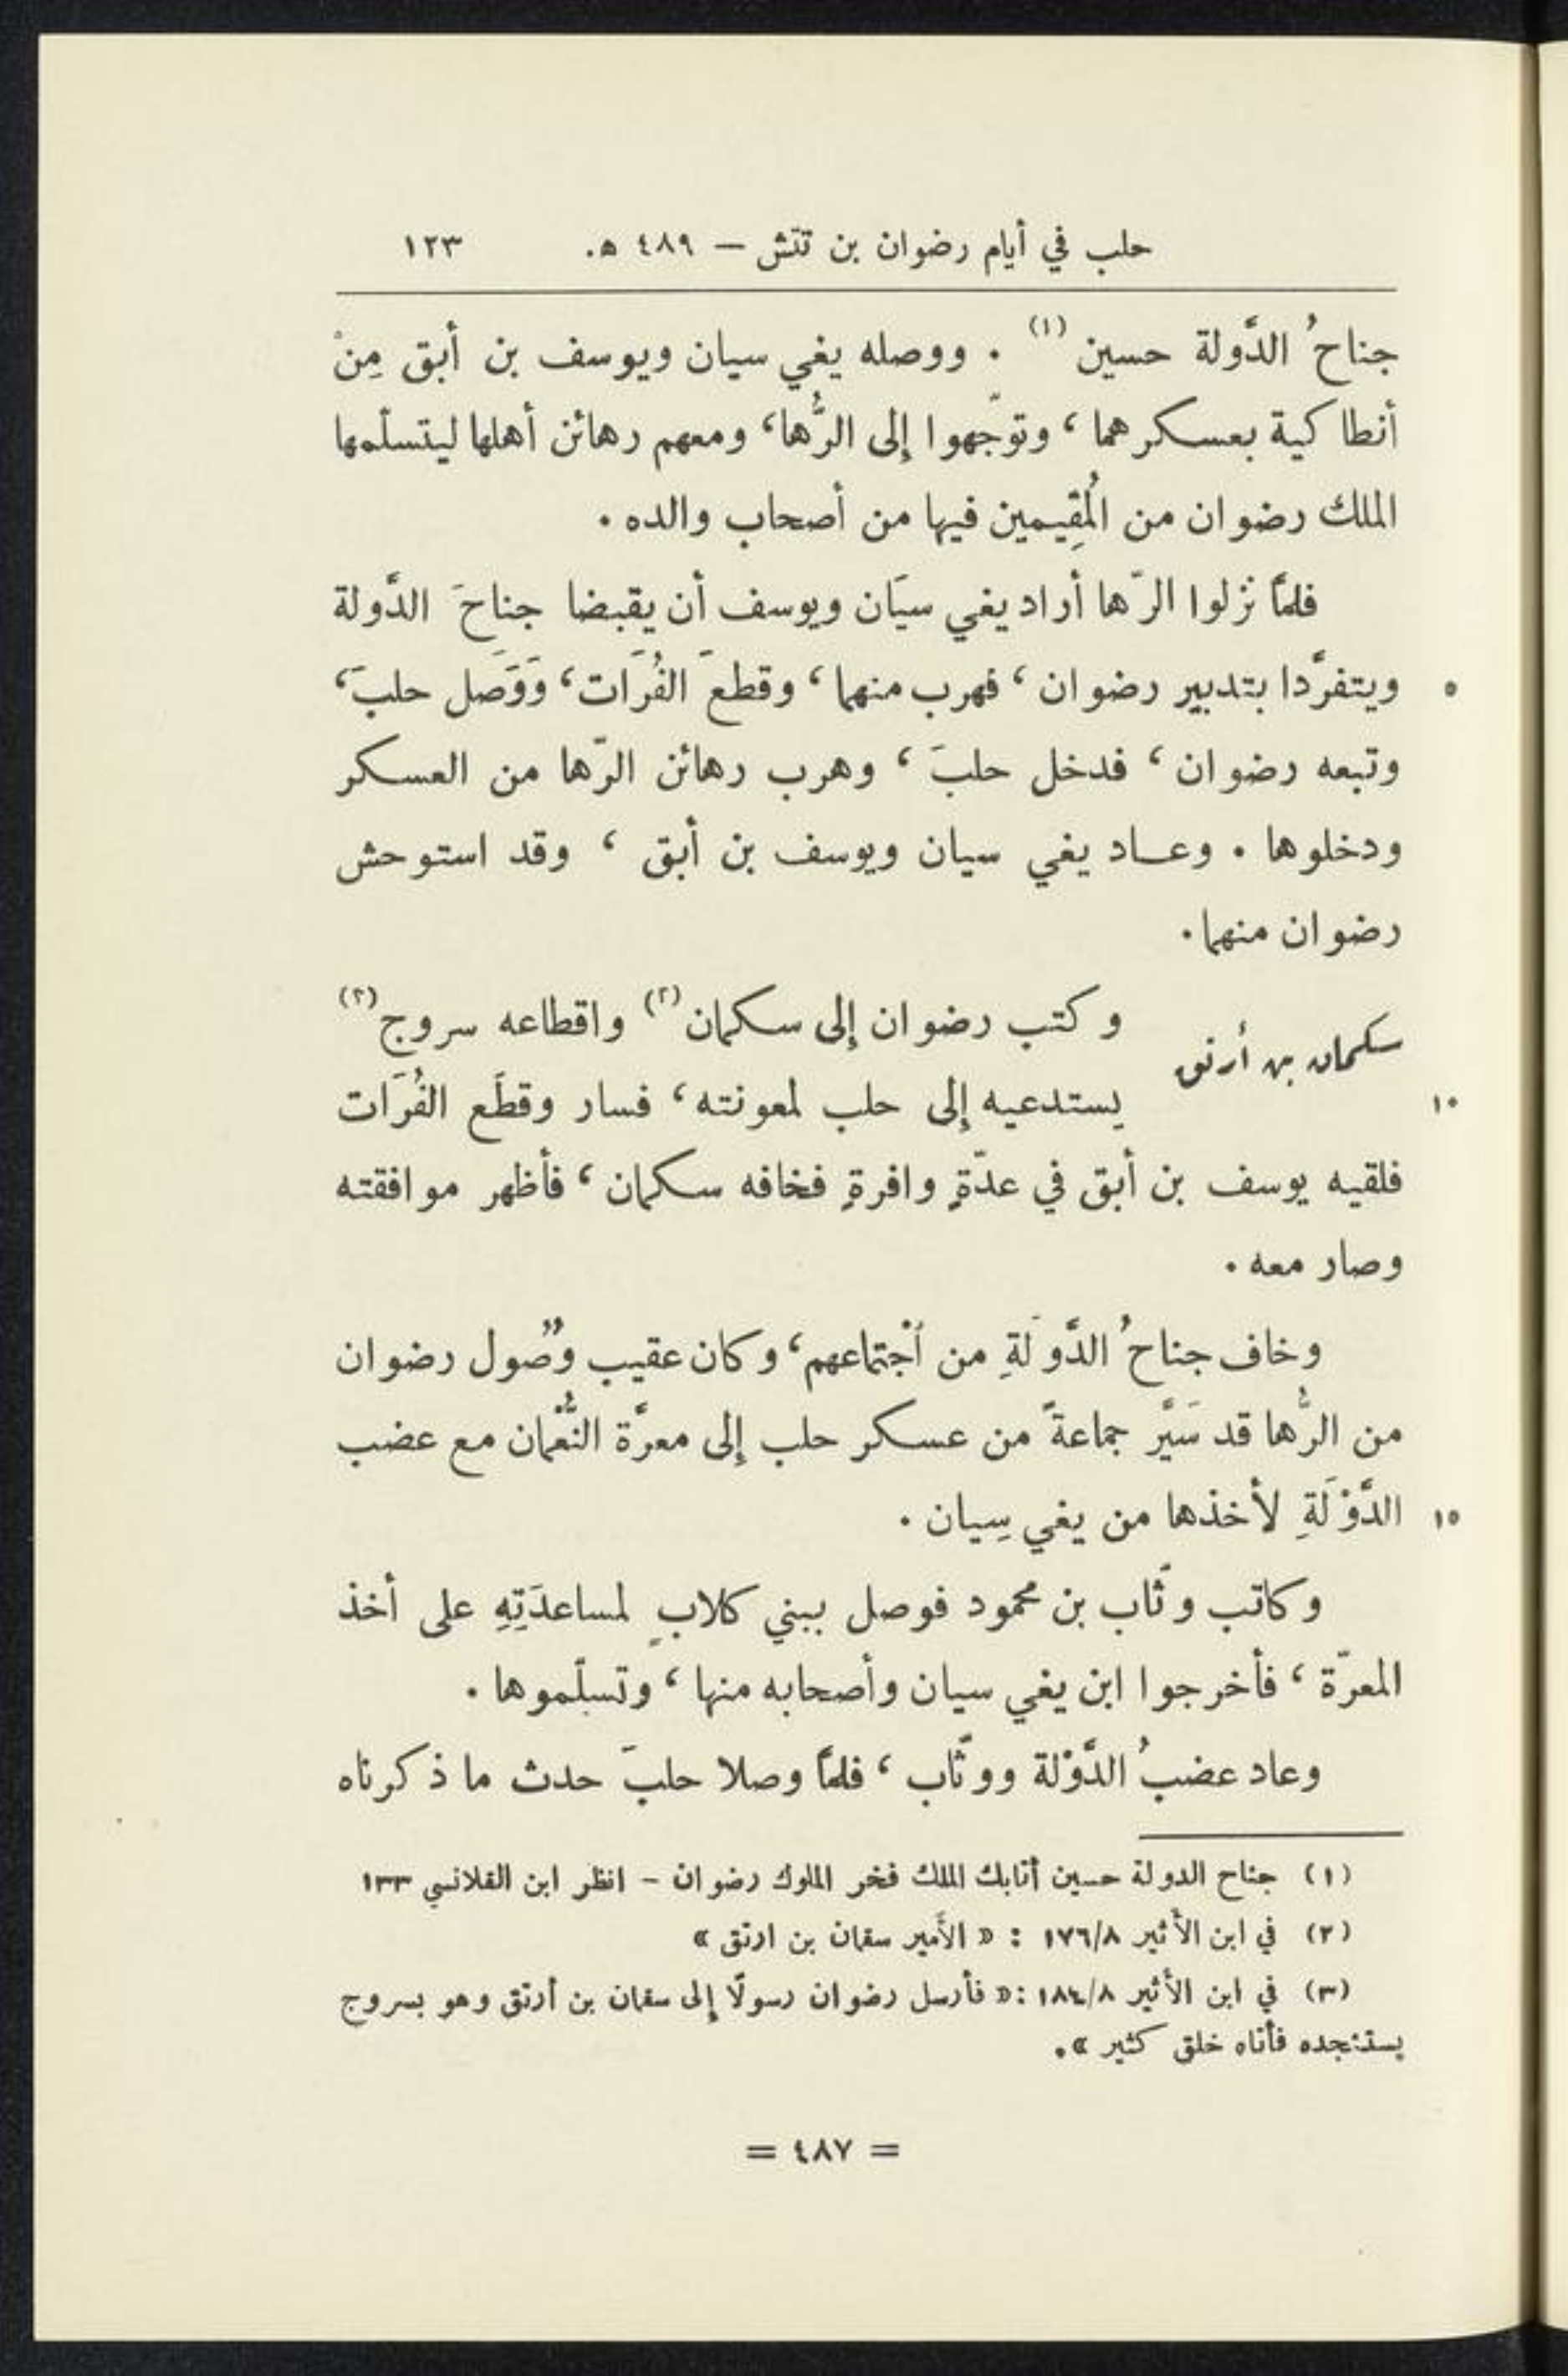 حلب في أيام رضوان بن تتش – ٤٨٩ ه. ١٢٣
جناحُ الدَّولة حسين (١) . ووصله يغي سيان ويوسف بن أبق مِنْ
أنطاكية بعسكرهما ، وتوجّهوا إلى الرُّها، ومعهم رهائن أهلها ليتسلّمها
الملك رضوان من المُقِيمين فيها من أصحاب والده .
فلمَّا نزلوا الرّها أراد يغي سيَان ويوسف أن يقبضا جناحَ الدَّولة
ويتفرَّدا بتدبير رضوان ، فهرب منهما ، وقطعَ الفُرَات ، وَوَصَل حلبَ ، ٥
وتبعه رضوان ، فدخل حلبَ ، وهرب رهائن الرّها من العسكر
ودخلوها . وعاد يغي سيان ويوسف بن أبق ، وقد استوحش
رضوان منهما .
سكمان بن أرتق
وكتب رضوان إلى سكمان (٢) واقطاعه سروج (٣)
يستدعيه إلى حلب لمعونته ، فسار وقطَع الفُرَات ١٠
فلقيه يوسف بن أبق في عدّةٍ وافرةٍ فخافه سكمان ، فأظهر موافقته
وصار معه .
وخاف جناحُ الدَّولَةِ من اُجْتماعهم ، وكان عقيب وُصُول رضوان
من الرُّها قد سَيَّر جماعةً من عسكر حلب إلى معرَّة النُّعْمان مع عضب
الدَّوْلَةِ لأخذها من يغي سِيان . ١٥
وكاتب وثَّاب بن محمود فوصل ببني كلابٍ لمساعدَتِهِ على أخذ
المعرّة ، فأخرجوا ابن يغي سيان وأصحابه منها ، وتسلّموها .
وعاد عضبُ الدَّوْلة ووثَّاب ، فلمَّا وصلا حلبَ حدث ما ذكرناه
(١) جناح الدولة حسين أتابك الملك فخر الملوك رضوان – انظر ابن القلانسي ١٣٣
(٢) في ابن الأثير ١٧٦/٨ : « الأمير سقمان بن ارتق »
(٣) في ابن الأثير ١٨٤/٨ : « فأرسل رضوان رسولًا إلى سقمان بن أرتق وهو بسروج
يستنجده فأتاه خلق كثير » .
= ٤٨٧ =